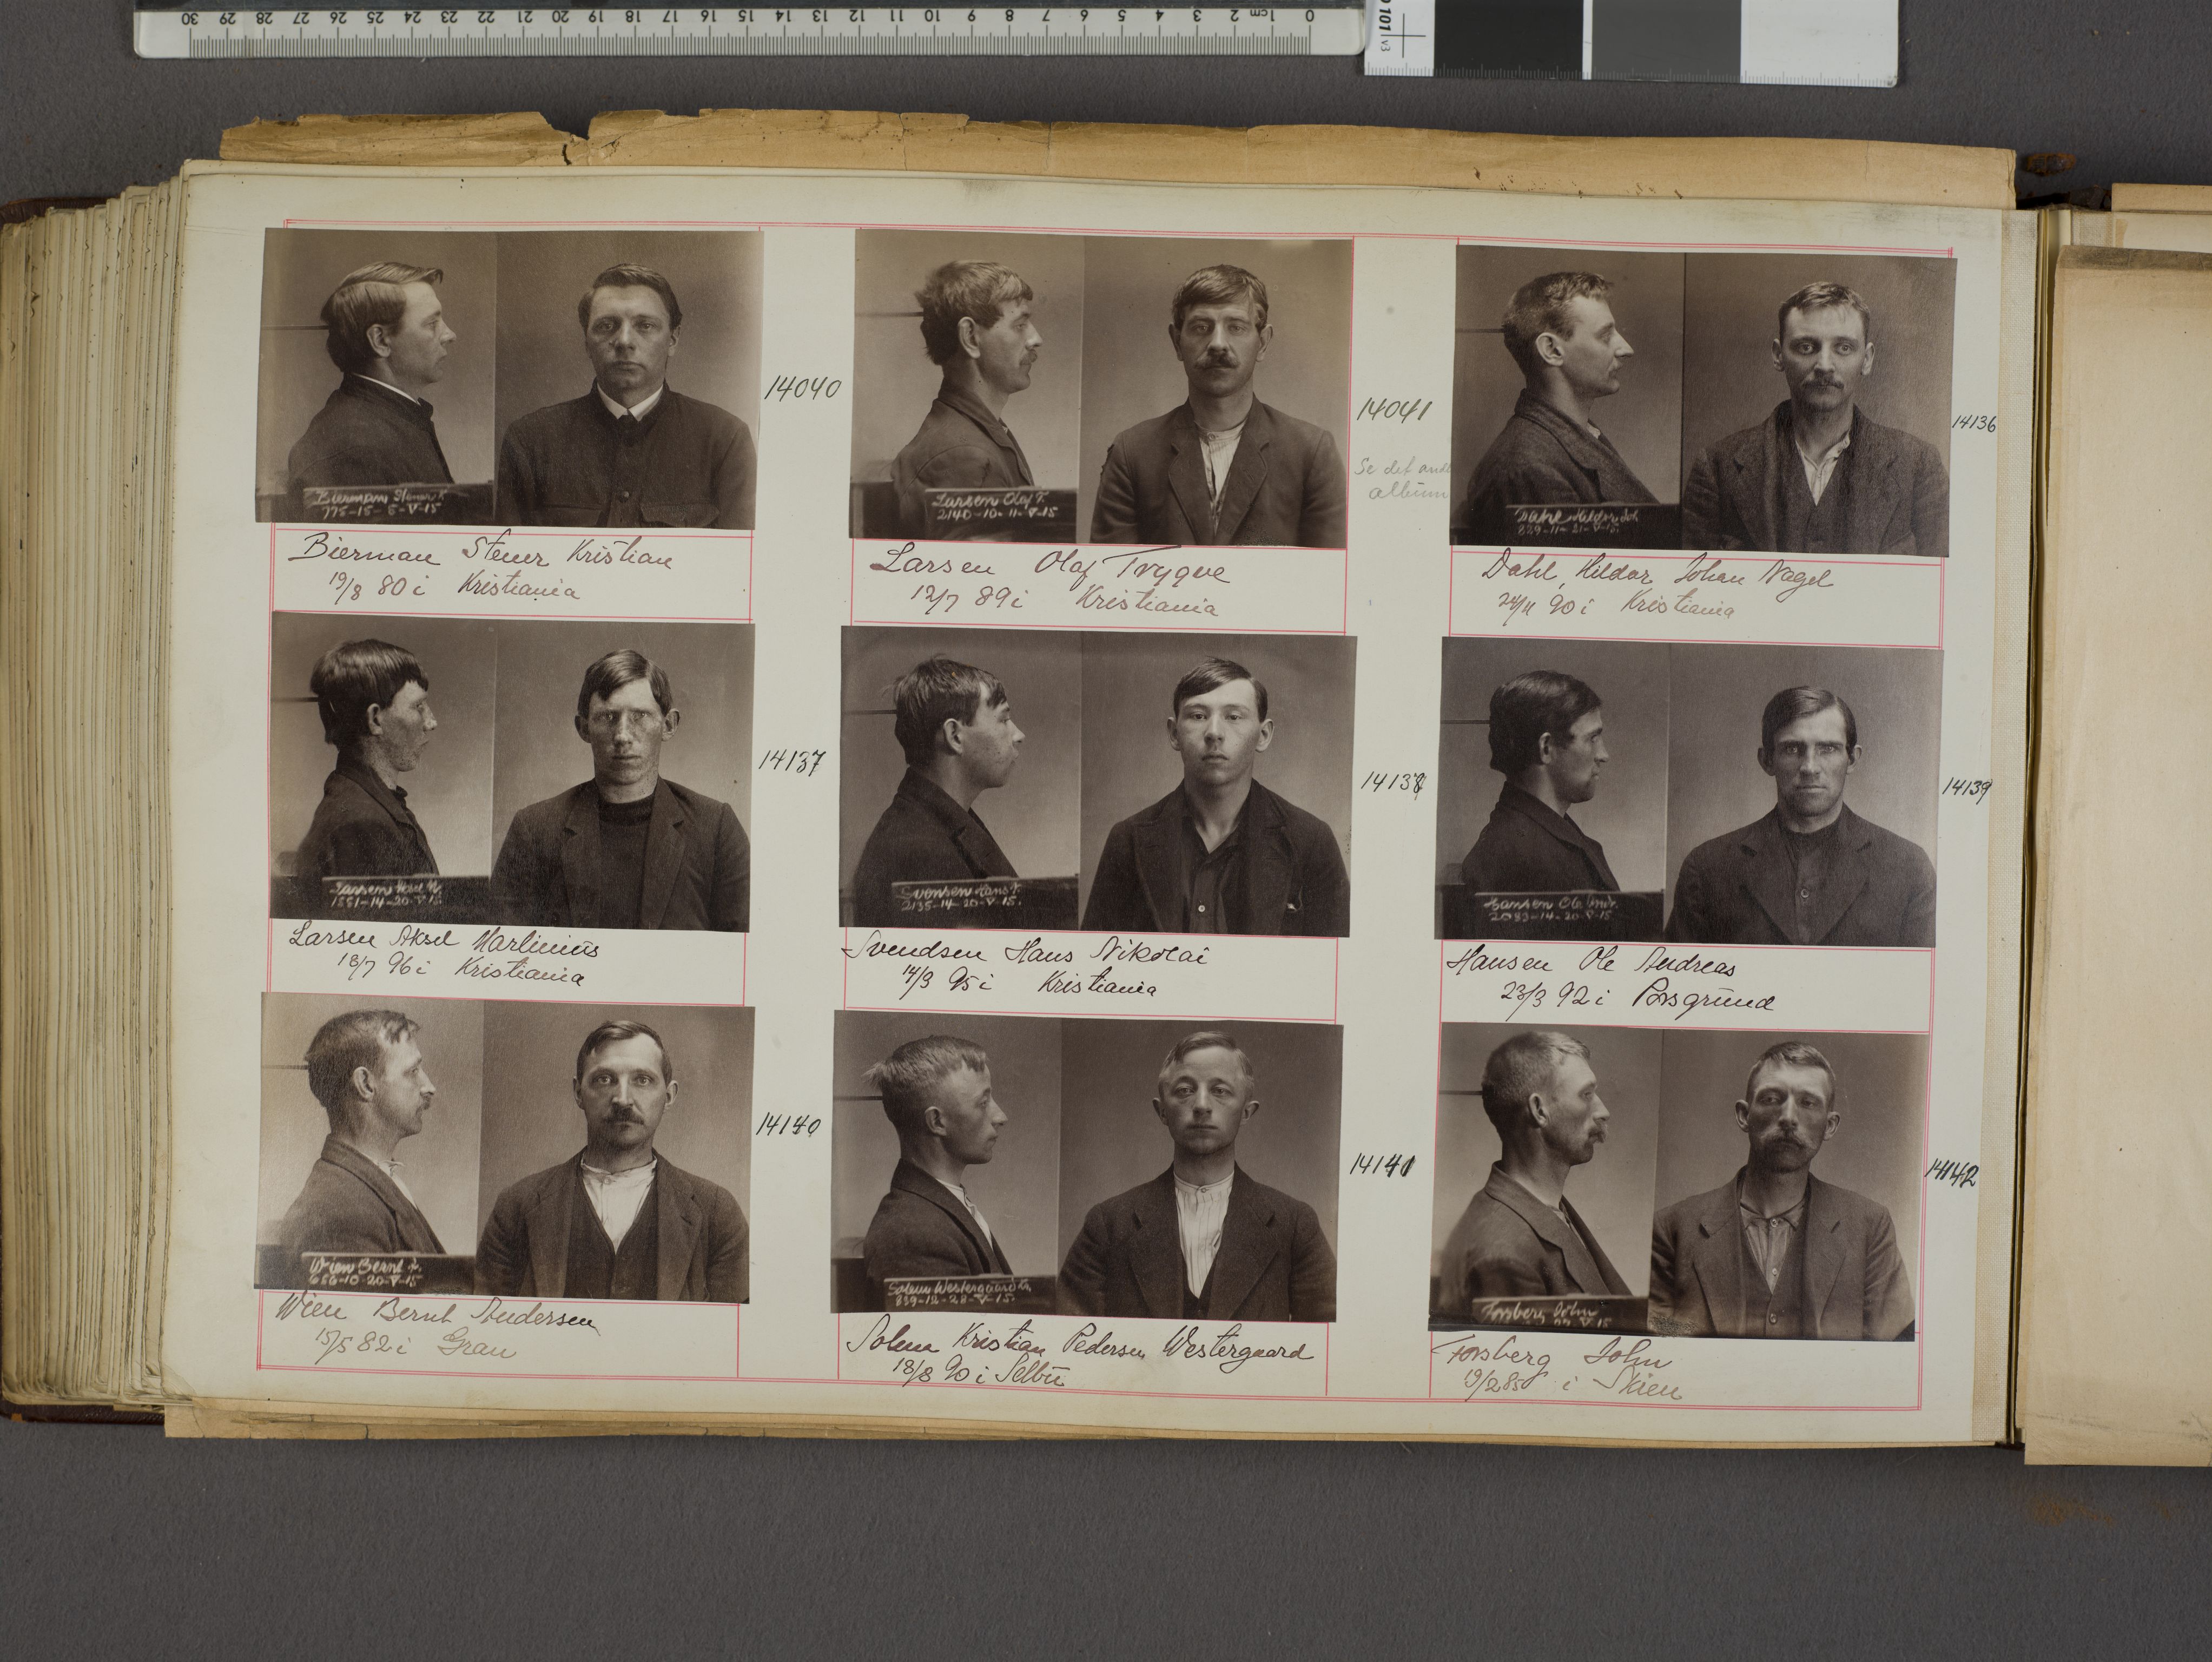 30 29 28 27 26 25 24 23 22 21 20 19 18 17 16 15 14 13 12 11 10 9 8 7 6 5 4 3 2 1cm 0
101 v3
Bierman Stener K
775-15-5-V-15
14040
Bierman Stener Kristian
19/8 80 i Kristiania
Larsen Olaf T.
2140-10-11-V-15
14041
Se det
album
Larsen Olaf Trygve
12/7 89 i Kristiania
Dahl Hildor Joh
829-11-21-V-15.
14136
Dahl, Hildor Johan Nagel
24/11 90 i Kristiania
Larsen Aksel M.
1551-14-20-V-15.
14137
Larsen Aksel Martinius
18/7 96 i Kristiania
Svensen Hans N.
2135-14-20-V-15.
14138
Svendsen Hans Nikolai
14/3 95 i Kristiania
Hansen Ole Andr.
2083-14-20-V-15
14139
Hansen Ole Andreas
23/3 92 i Porsgrund
Wien Bernt A.
656-10-20-V-15
14140
Wien Bernt Andersen
15/5 82 i Gran
Solem Westergaard Kr.
839-12-28-V-15.
14141
Solem Kristian Pedersen Westergaard
18/8 90 i Selbu
Forsberg John
V-15
14142
Forsberg John
19/2 85 i Skien